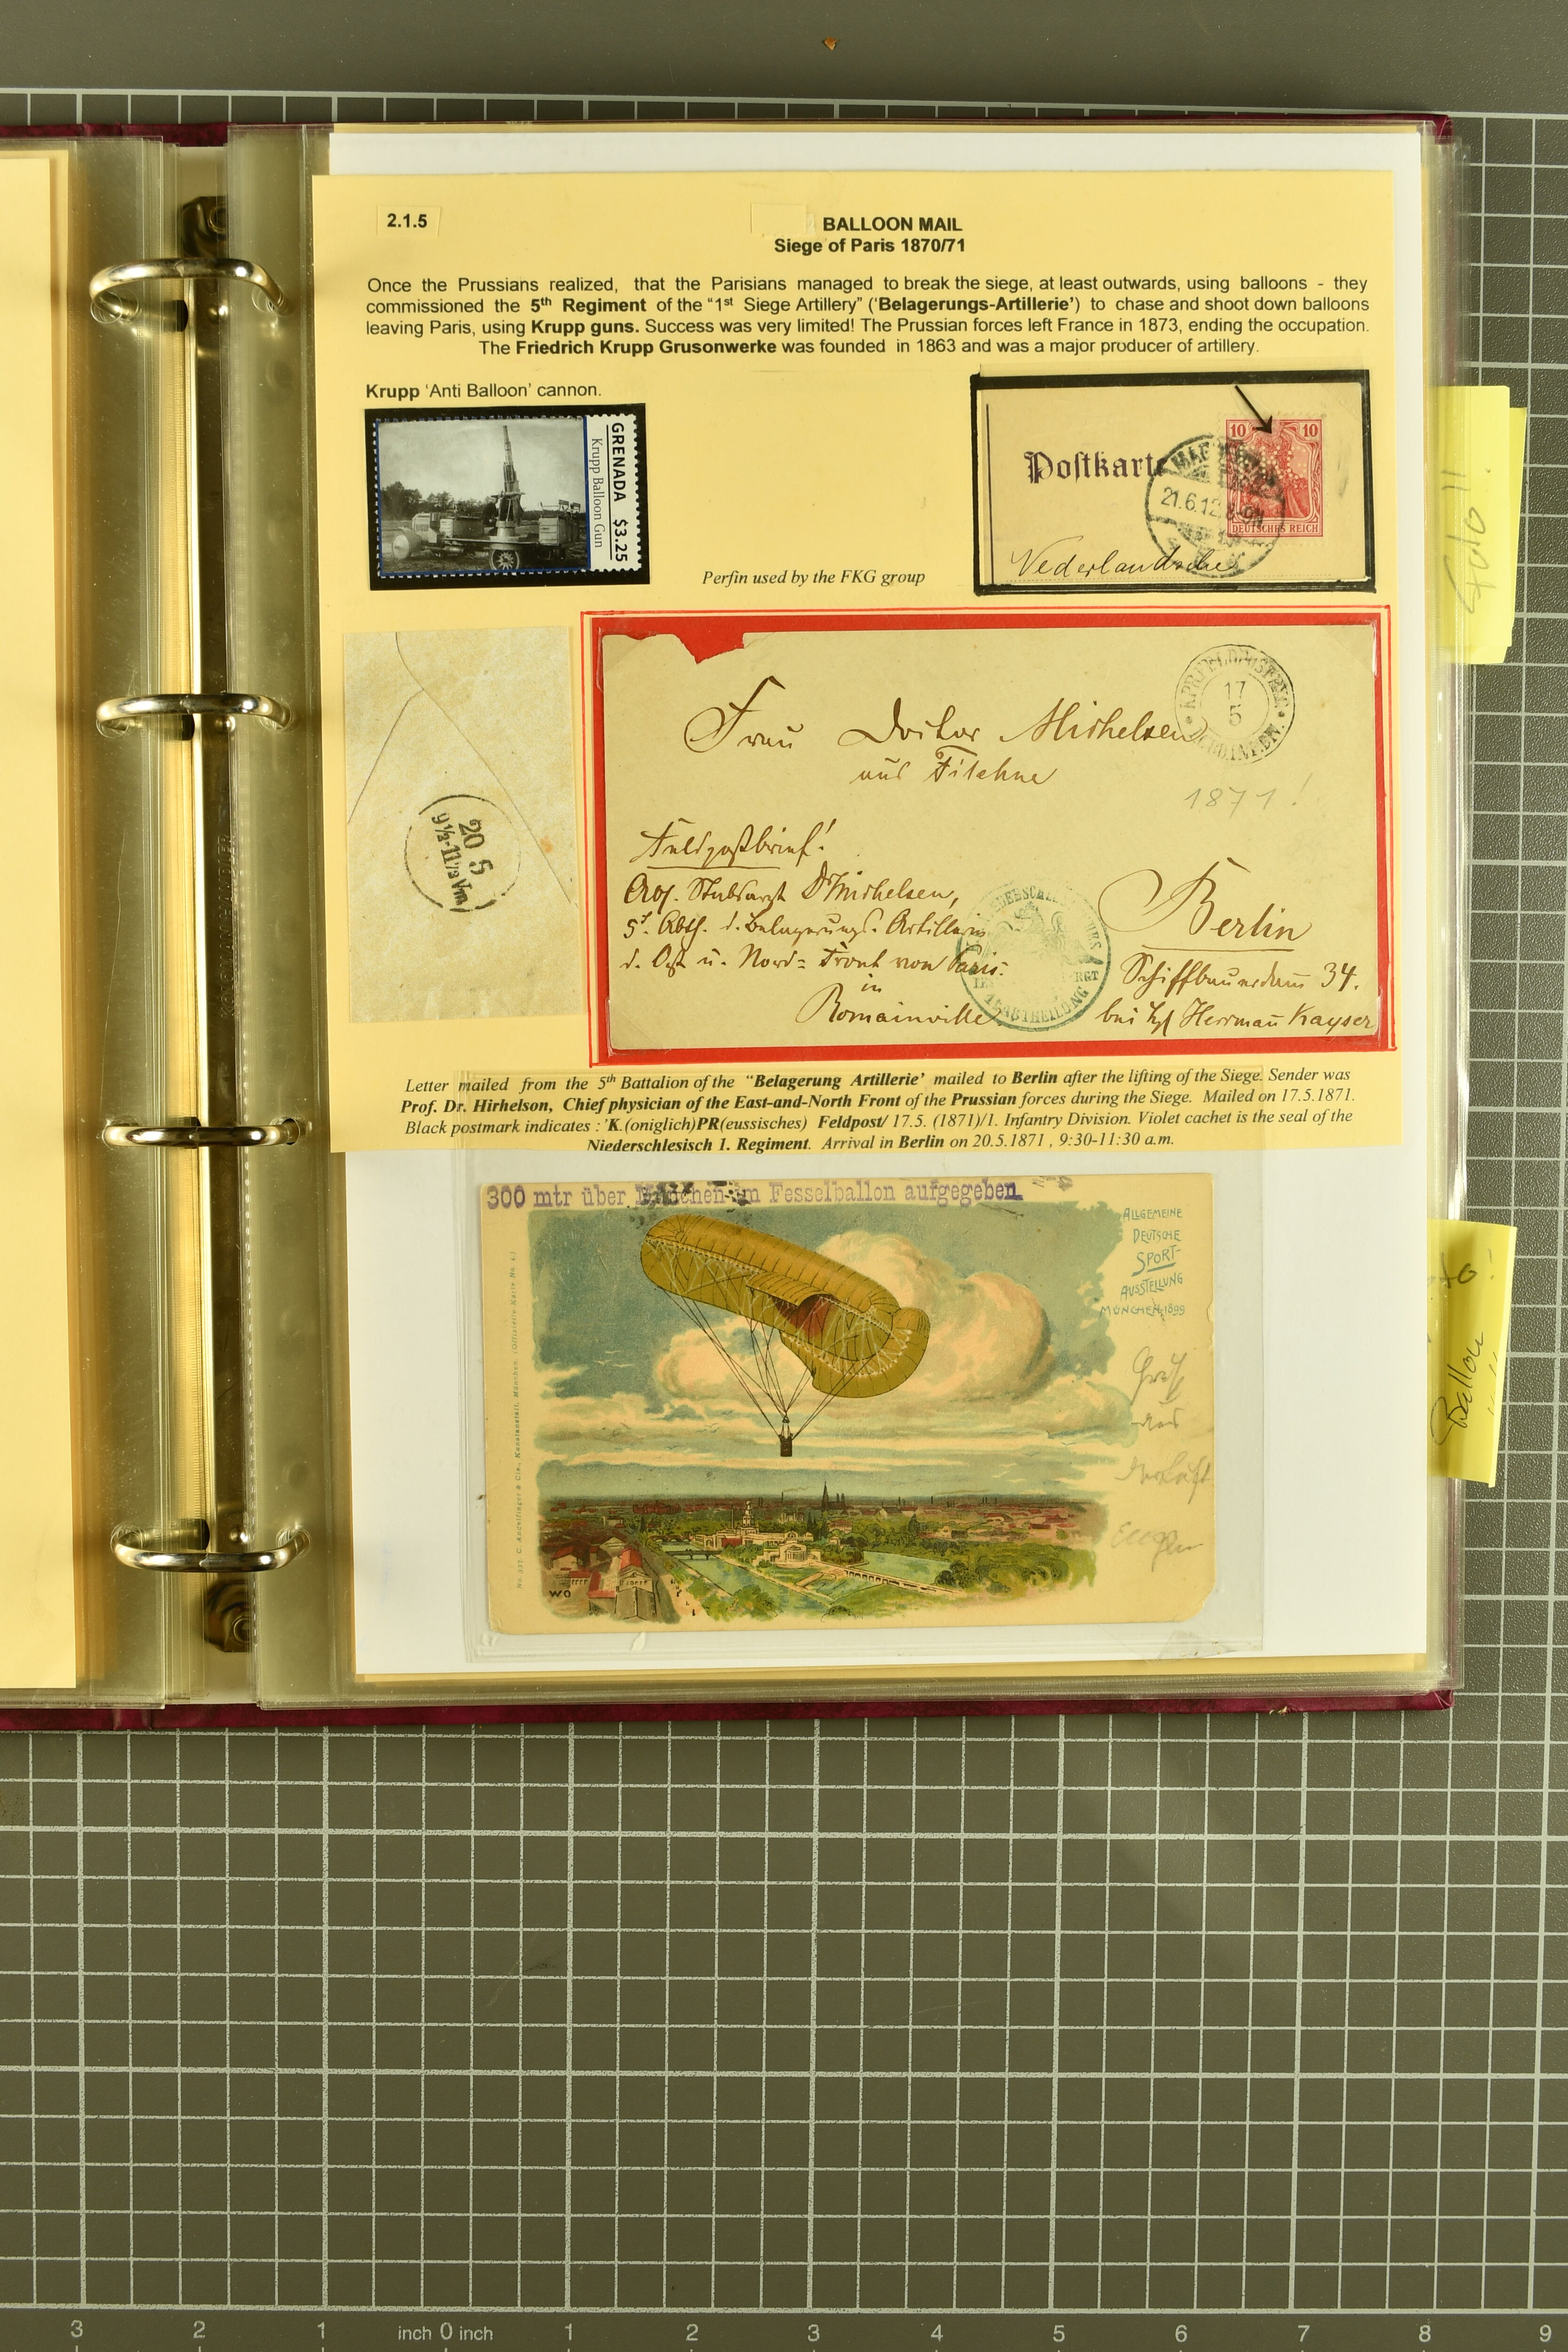 2.1.5
BALLOON MAIL
Siege of Paris 1870/71
Once the Prussians realized, that the Parisians managed to break the siege, at least outwards, using balloons - they
commissioned the 5th Regiment of the "1st Siege Artillery" ('Belagerungs-Artillerie') to chase and shoot down balloons
leaving Paris, using Krupp guns. Success was very limited! The Prussian forces left France in 1873, ending the occupation.
The Friedrich Krupp Grusonwerke was founded in 1863 and was a major producer of artillery.
Krupp 'Anti Balloon' cannon.
GRENADA $3.25
Krupp Balloon Gun
Perfin used by the FKG group
Postkarte
10 10
DEUTSCHES REICH
21.6.12. 8-9
Nederlandsche
20 5
9½-11½ Vm
Frau Doctor Mirhelsen
aus Filehne
17
5
1871!
Feldpostbrief!
Stabsarzt Dr Mirhelsen,
5t. Abth. d. Belagerungs-Artillerie
d. Ost u. Nord=Front von Paris.
in
Romainville
Berlin
Schiffbauerdam 34.
bei Herrman Kayser
Letter mailed from the 5th Battalion of the "Belagerung Artillerie' mailed to Berlin after the lifting of the Siege. Sender was
Prof. Dr. Hirhelson, Chief physician of the East-and-North Front of the Prussian forces during the Siege. Mailed on 17.5.1871.
Black postmark indicates : 'K.(oniglich)PR(eussisches) Feldpost/ 17.5. (1871)/1. Infantry Division. Violet cachet is the seal of the
Niederschlesisch 1. Regiment. Arrival in Berlin on 20.5.1871 , 9:30-11:30 a.m.
300 mtr über München im Fesselballon aufgegeben
ALLGEMEINE
DEUTSCHE
SPORT-
AUSSTELLUNG
MÜNCHEN 1899
Gruß
aus
der Luft
WO
Ballon
3 2 1 inch 0 inch 1 2 3 4 5 6 7 8 9